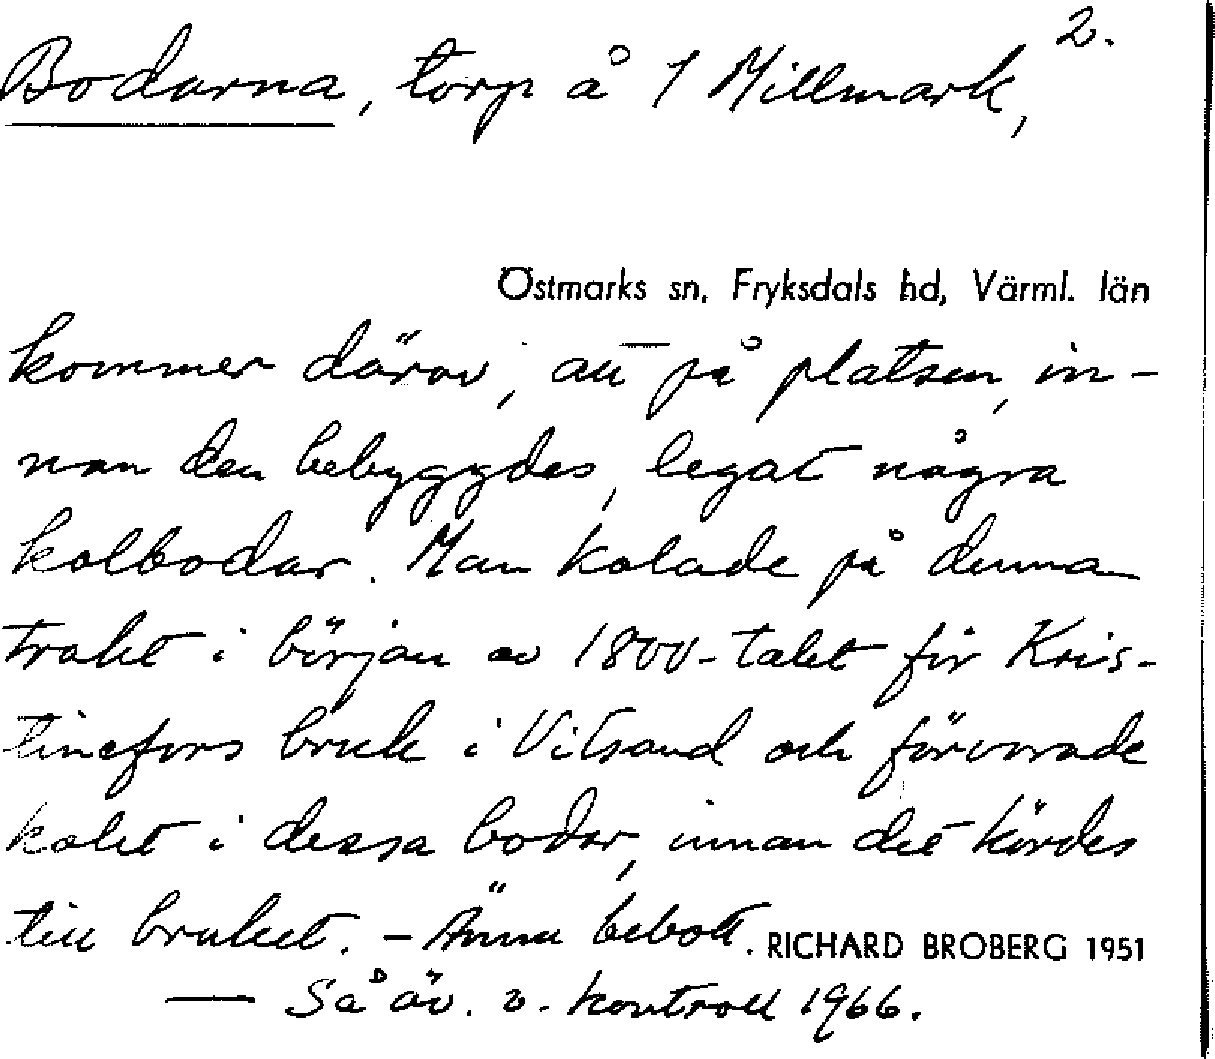 2.
Bodarna, torp å 1 Millmark,
Östmarks sn, Fryksdals hd, Värml. län
kommer därav, att på platsen, in-
nan den bebyggdes, legat några
kolbodar. Man kolade på denna
trakt i början av 1800-talet för Kris-
tinefors bruk i Vitsand och förvarade
kolet i dessa bodar, innan det kördes
till bruket. – Ännu bebott. RICHARD BROBERG 1951
— Så äv. v. kontroll 1966.